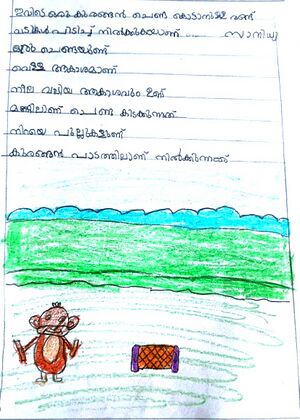 ഇവിടെ ഒരു കുരങ്ങൻ ചെണ്ട കൊട്ടാനുള്ള രണ്ട്
വടികൾ പിടിച്ച് നിൽക്കുകയാണ് .... സാനിധ്യ
ഒരു ചെണ്ടയുണ്ട്
വെള്ള ആകാശമാണ്
നീല വലിയ ആകാശവും ഉണ്ട്
മണ്ണിലാണ് ചെണ്ട കിടക്കുന്നത്
നിറയെ പുല്ലുകളുണ്ട്
കുരങ്ങൻ പാടത്തിലാണ് നിൽക്കുന്നത്